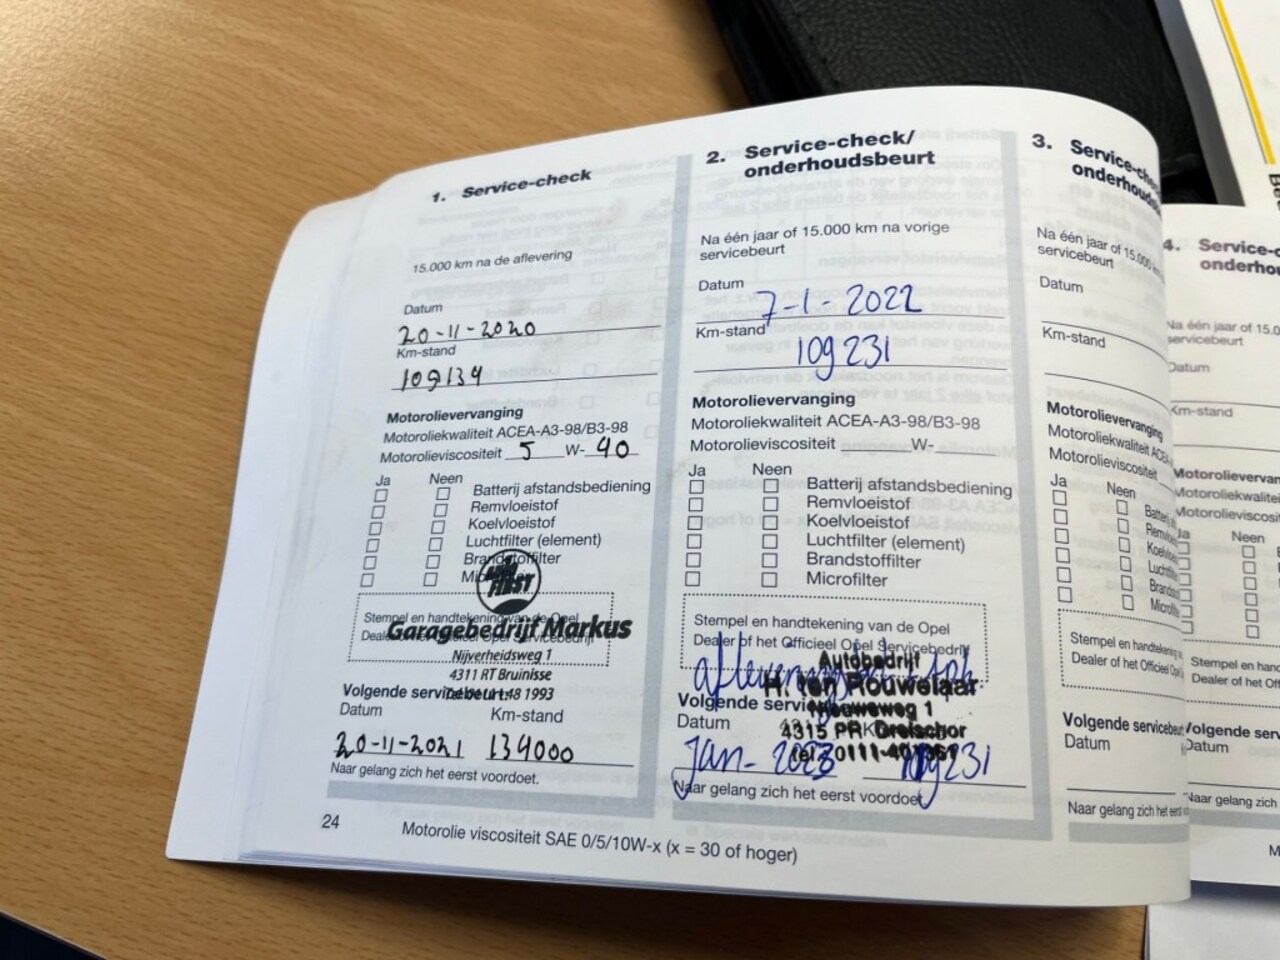 1. Service-check
15.000 km na de aflevering
Datum
20-11-2020
Km-stand
109134
Motorolievervanging
Motoroliekwaliteit ACEA-A3-98/B3-98
Motorolieviscositeit 5 W- 40
Ja Neen
Batterij afstandsbediening
Remvloeistof
Koelvloeistof
Luchtfilter (element)
Brandstoffilter
FIRST
Stempel en handtekening van de Opel
Garagebedrijf Markus
Nijverheidsweg 1
4311 RT Bruinisse
48 1993
Volgende servicebeurt
Datum Km-stand
20-11-2021 134000
Naar gelang zich het eerst voordoet.
24
Motorolie viscositeit SAE 0/5/10W-x (x = 30 of hoger)
2. Service-check/
onderhoudsbeurt
Na één jaar of 15.000 km na vorige
servicebeurt
Datum
7-1-2022
Km-stand
109231
Motorolievervanging
Motoroliekwaliteit ACEA-A3-98/B3-98
Motorolieviscositeit W-
Ja Neen
Batterij afstandsbediening
Remvloeistof
Koelvloeistof
Luchtfilter (element)
Brandstoffilter
Microfilter
Stempel en handtekening van de Opel
Dealer of het Officieel Opel Servicebedrijf
Autobedrijf
H. ten Rouwelaar
Nieuweweg 1
4315 PR Dreischor
Volgende
Datum
Jan- 2023 109231
Naar gelang zich het eerst voordoet
3. Service-
Na één jaar of 15.000
servicebeurt
Datum
Km-stand
Motorolievervanging
Motoroliekwaliteit
Motorolieviscositeit
Ja Neen
Stempel en handtekening
Dealer of het Officieel
Volgende
Datum
Naar gelang zich het eerst
4. Service-
Na één jaar of 15.0
servicebeurt
Datum
Km-stand
Neen
Stempel en hand
Dealer of het Off
Volgende
Datum
Naar gelang zich